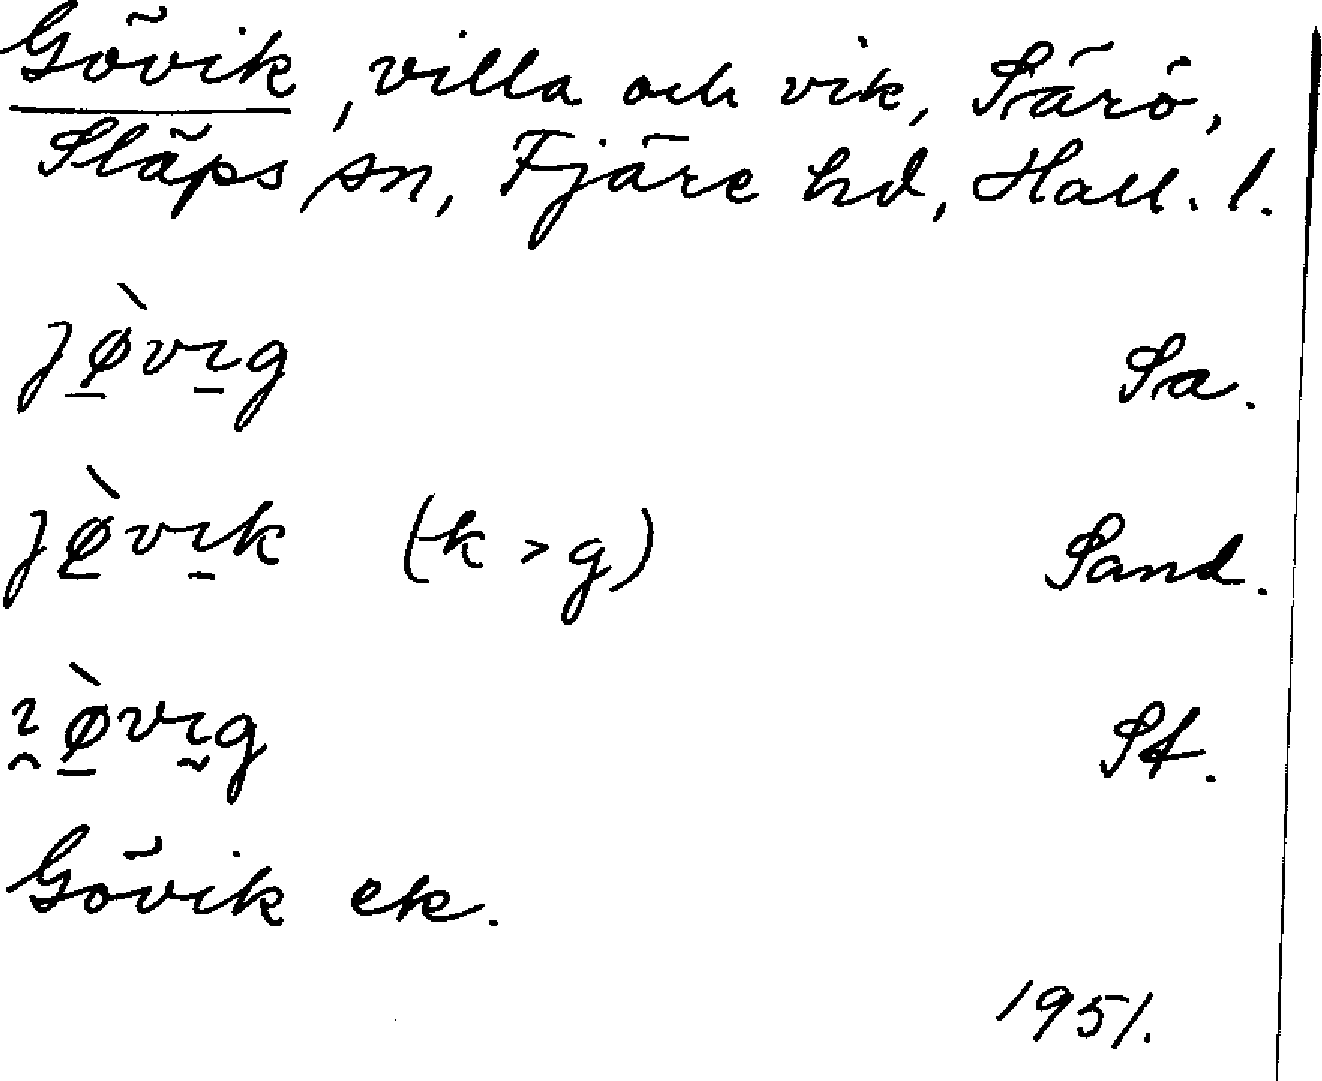 Gövik, villa och vik, Särö,
Släps sn, Fjäre hd, Hall. l.
jø̱̀vı̱g Sa.
jø̱̀vı̱k (k > g) Sand.
ı̯ø̱̀vı̰g St.
Gövik ek.
1951.